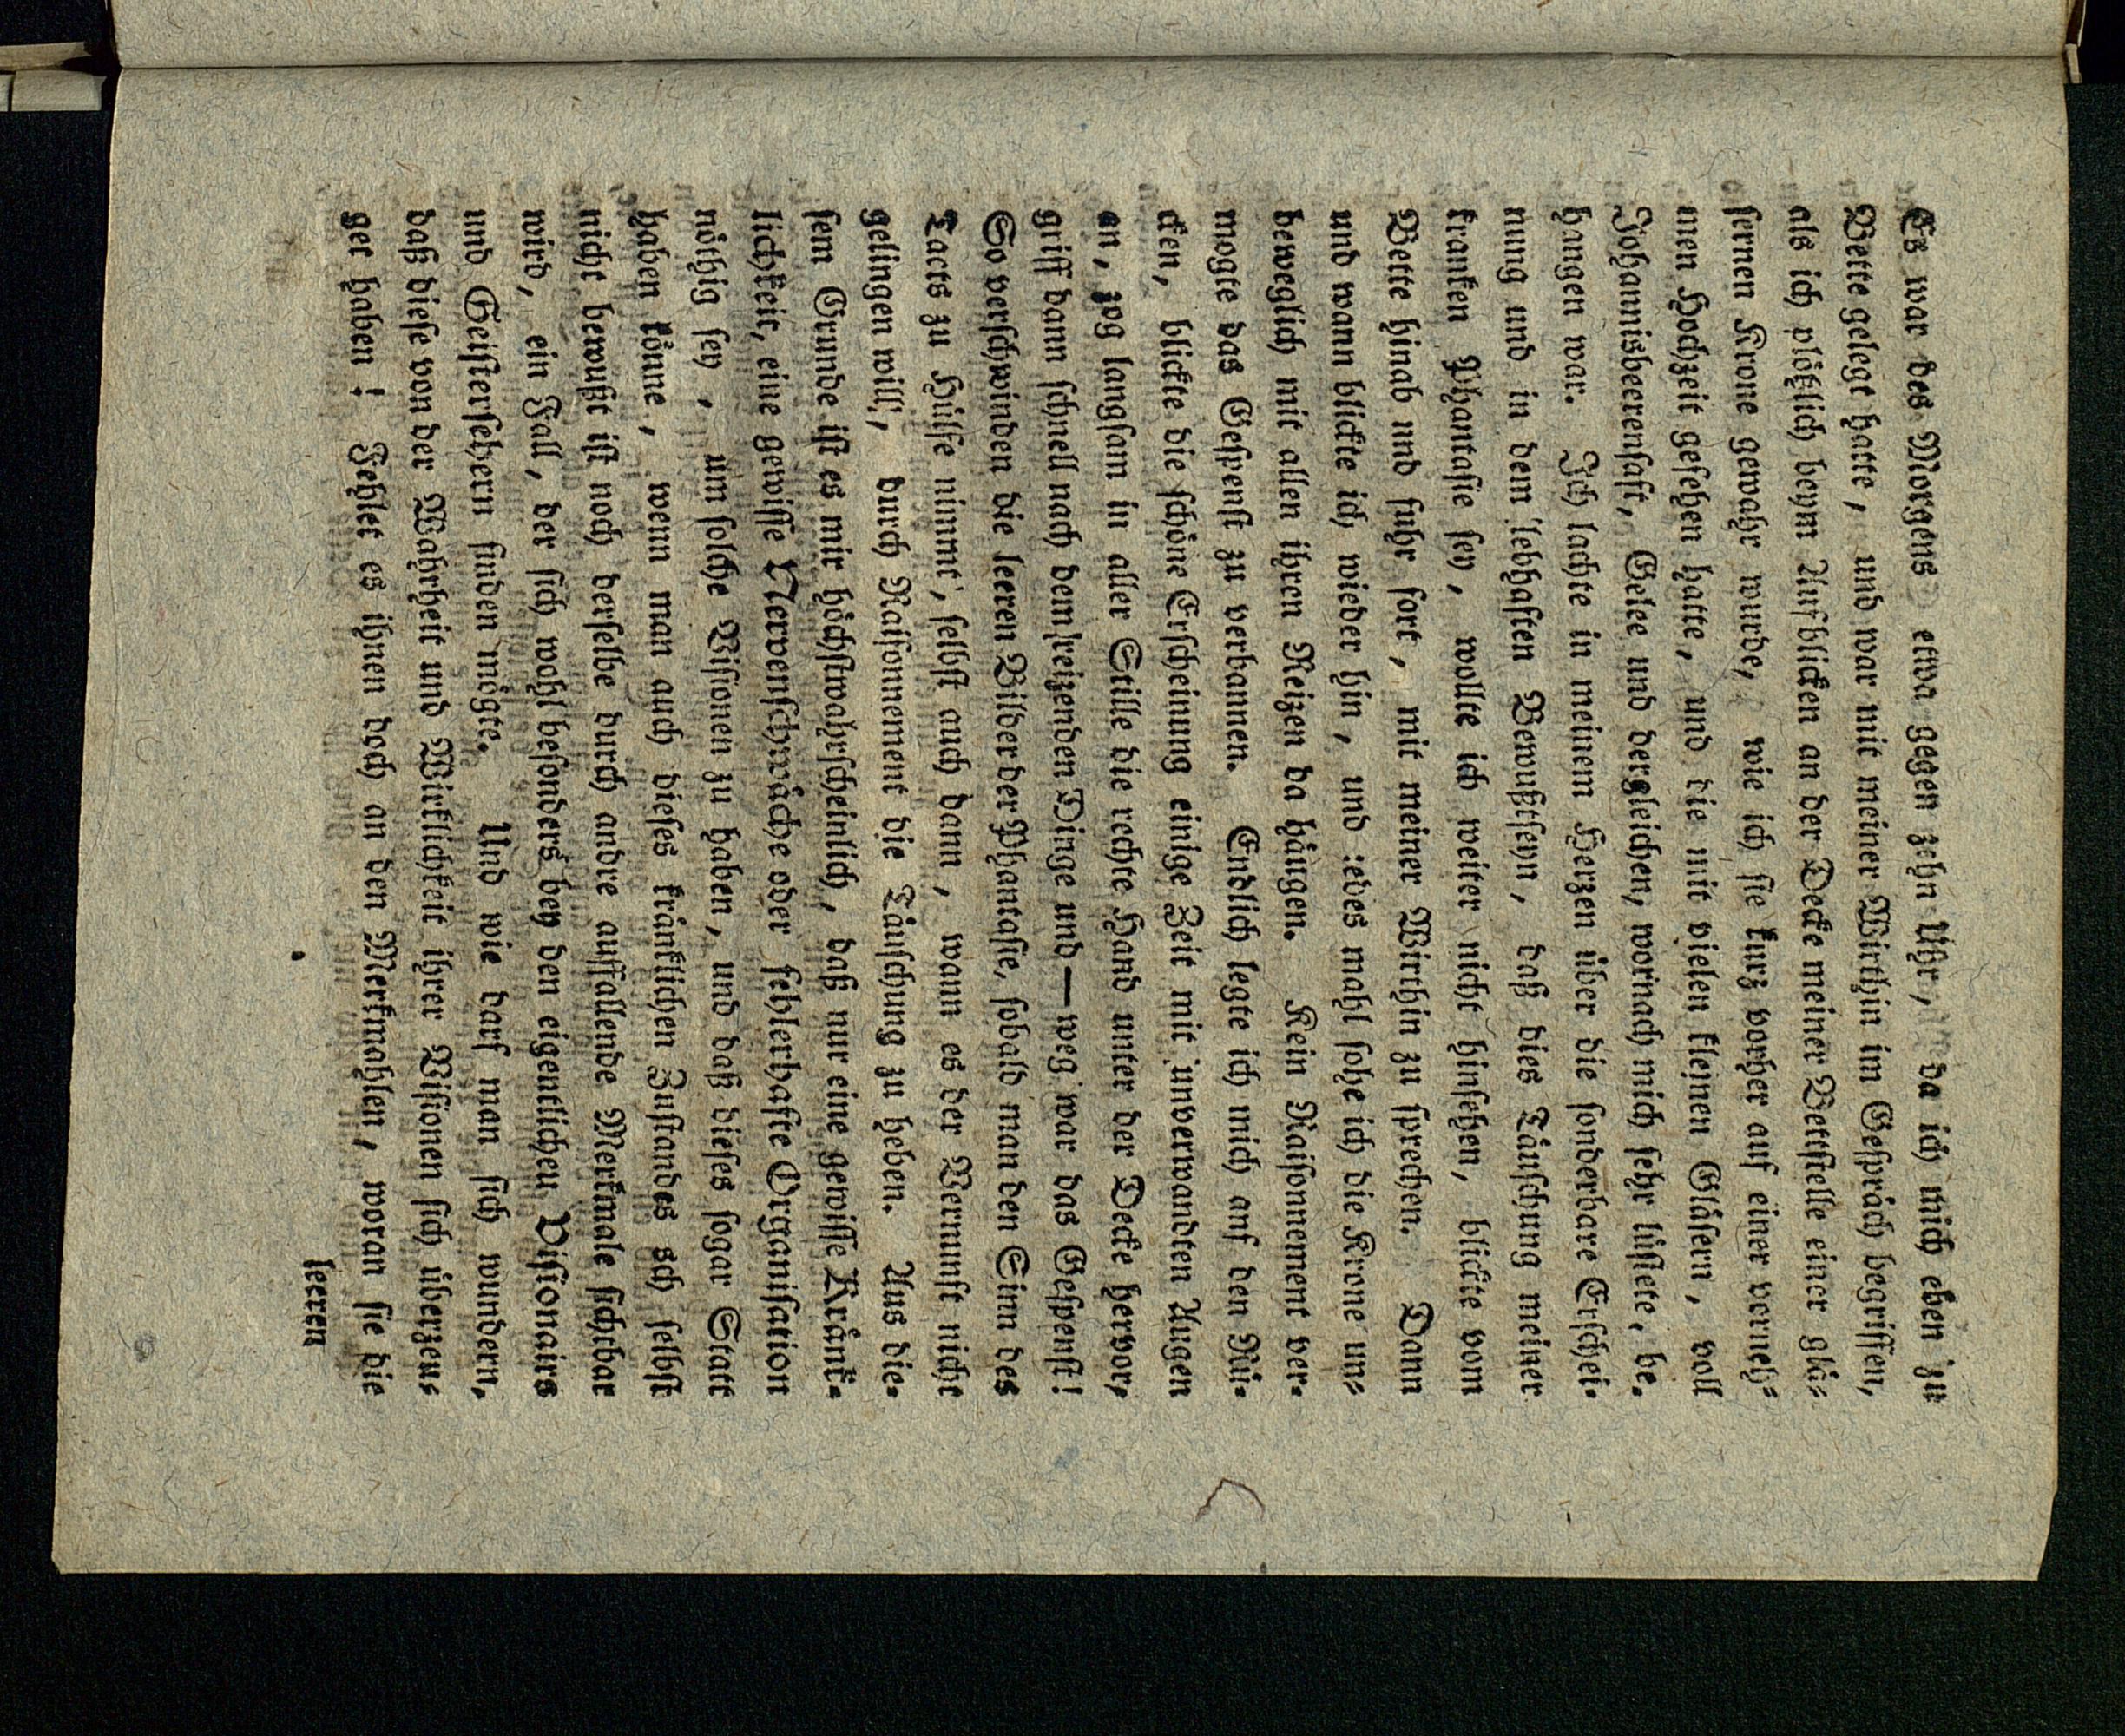 Es war des Morgens etwa gegen zehn Uhr, da ich mich eben zu
Bette gelegt hatte, und war mit meiner Wirthin im Gespräch begriffen,
als ich plötzlich beym Aufblicken an der Decke meiner Bettstelle einer glä⸗
sernen Krone gewahr wurde, wie ich sie kurz vorher auf einer vorneh⸗
men Hochzeit gesehen hatte, und die mit vielen kleinen Gläsern, voll
Johannisbeerensaft, Gelee und dergleichen, wornach mich sehr lüstete, be⸗
hangen war. Ich lachte in meinem Herzen über die sonderbare Erschei⸗
nung und in dem lebhaften Bewußtseyn, daß dies Täuschung meiner
kranken Phantasie sey, wollte ich weiter nicht hinsehen, blickte vom
Bette hinab und fuhr fort, mit meiner Wirthin zu sprechen. Dann
und wann blickte ich wieder hin, und jedes mahl sahe ich die Krone un⸗
beweglich mit allen ihren Reizen da hängen. Kein Raisonnement ver⸗
mogte das Gespenst zu verbannen. Endlich legte ich mich auf den Rü⸗
cken, blickte die schöne Erscheinung einige Zeit mit unverwandten Augen
an, zog langsam in aller Stille die rechte Hand unter der Decke hervor,
griff dann schnell nach dem reizenden Dinge und — weg war das Gespenst!
So verschwinden die leeren Bilder der Phantasie, sobald man den Sinn des
Tacts zu Hülfe nimmt, selbst auch dann, wann es der Vernunft nicht
gelingen will, durch Raisonnement die Täuschung zu heben. Aus die⸗
sem Grunde ist es mir höchstwahrscheinlich, daß nur eine gewisse Kränk⸗
lichkeit, eine gewisse Nervenschwäche oder fehlerhafte Organisation
nöthig sey, um solche Visionen zu haben, und daß dieses sogar Statt
haben könne, wenn man auch dieses kränklichen Zustandes sch selbst
nicht bewußt ist noch derselbe durch andre auffallende Merkmale sichtbar
wird, ein Fall, der sich wohl besonders bey den eigentlichen Visionairs
und Geistersehern finden mögte. Und wie darf man sich wundern,
daß diese von der Wahrheit und Wirklichkeit ihrer Visionen sich überzeu⸗
get haben! Fehlet es ihnen doch an den Merkmahlen, woran sie die
leeren